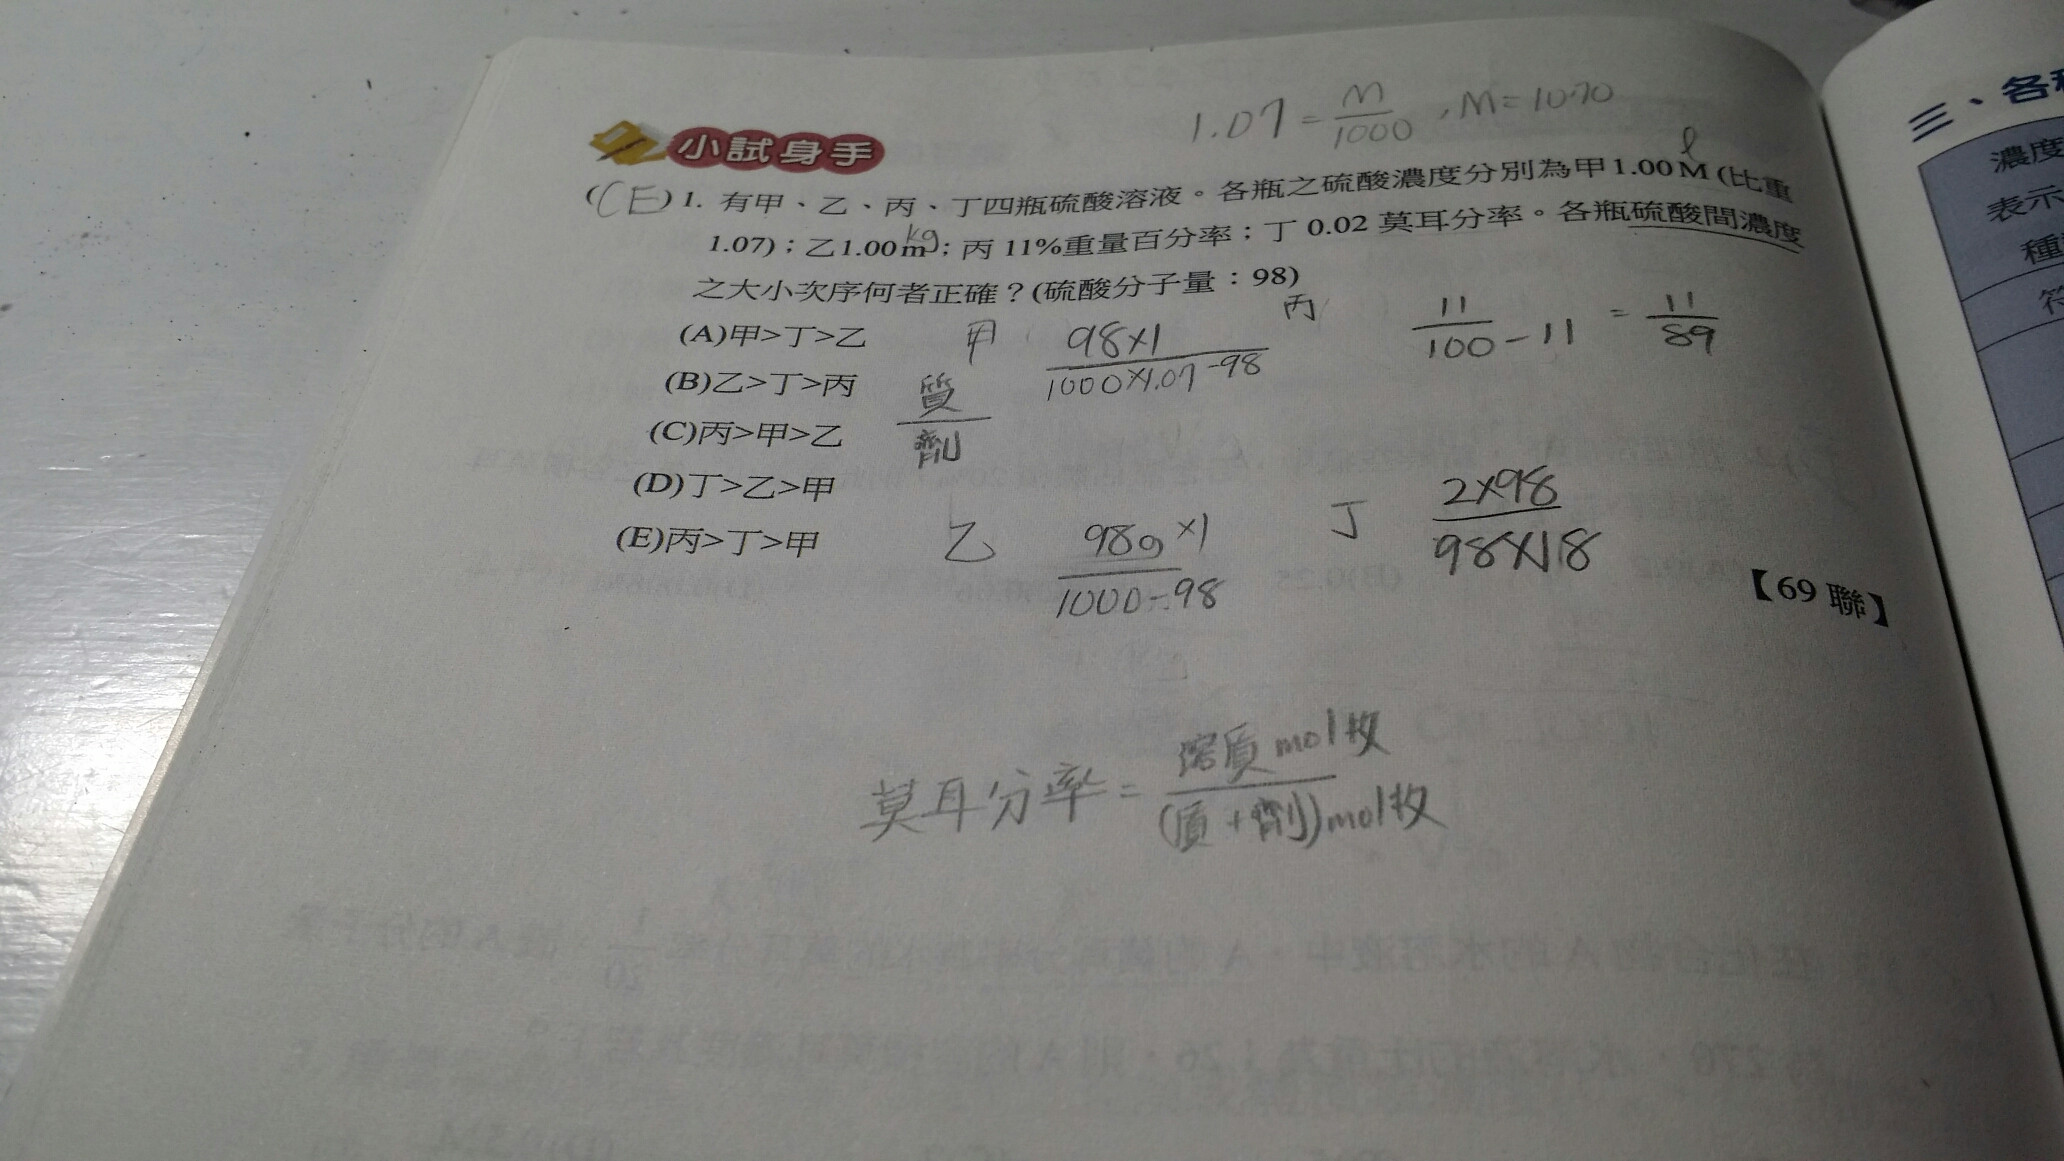 1.07 = M/1000 , M = 1070
小試身手
(CE) 1. 有甲、乙、丙、丁四瓶硫酸溶液。各瓶之硫酸濃度分別為甲1.00 M (比重
l
1.07)；乙1.00 m；丙 11%重量百分率；丁 0.02 莫耳分率。各瓶硫酸間濃度
kg
之大小次序何者正確？(硫酸分子量：98)
(A)甲>丁>乙
(B)乙>丁>丙
(C)丙>甲>乙
(D)丁>乙>甲
(E)丙>丁>甲
甲 98×1/1000×1.07-98
丙 11/100-11 = 11/89
質/劑
乙 98g×1/1000-98
丁 2×98/98×18
【69 聯】
莫耳分率 = 溶質mol枚/(質+劑)mol枚
三、各種
濃度
表示
種
符